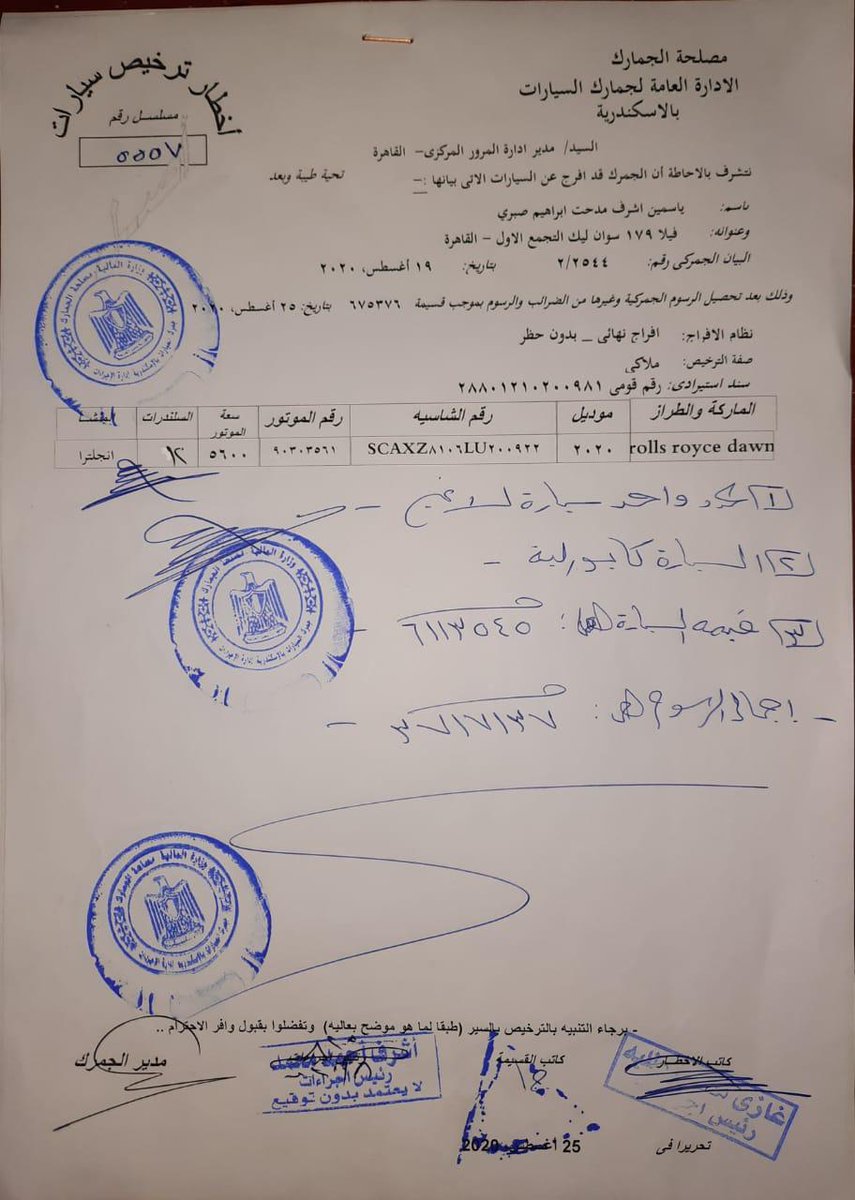 مصلحة الجمارك
الادارة العامة لجمارك السيارات
بالاسكندرية
أخطار ترخيص سيارات
مسلسل رقم
٥٥٥٧
السيد/ مدير ادارة المرور المركزى- القاهرة
تحية طيبة وبعد
نتشرف بالاحاطة أن الجمرك قد افرج عن السيارات الاتى بيانها :-
باسم: ياسمين اشرف مدحت ابراهيم صبري
وعنوانه: فيلا ١٧٩ سوان ليك التجمع الاول - القاهرة
البيان الجمركى رقم: ٢/٢٥٤٤ بتاريخ: ١٩ أغسطس، ٢٠٢٠
وذلك بعد تحصيل الرسوم الجمركية وغيرها من الضرائب والرسوم بموجب قسيمة ٦٧٥٣٧٦ بتاريخ: ٢٥ أغسطس، ٢٠٢٠
نظام الافراج: افراج نهائى _ بدون حظر
صفة الترخيص: ملاكى
سند استيرادى: رقم قومى ٢٨٨٠١٢١٠٢٠٠٩٨١
الماركة والطراز موديل رقم الشاسيه رقم الموتور سعة الموتور السلندرات المنشأ
rolls royce dawn ٢٠٢٠ SCAXZ٨١٠٦LU٢٠٠٩٢٢ ٩٠٣٠٣٥٦١ ٥٦٠٠ ١٢ انجلترا
١) واحد سيارة لا غير -
٢) السيارة كابورلية -
٣) قيمة السيارة : ٦١١٣٥٤٥ -
- إجمالى الرسوم : ٣٧١٧١٣٧ -
وزارة المالية مصلحة الجمارك
- برجاء التنبيه بالترخيص بالسير (طبقا لما هو موضح بعاليه) وتفضلوا بقبول وافر الاحترام ..
كاتب الاخطار
كاتب القسيمة
مدير الجمرك
أشرف
رئيس اجراءات
لا يعتمد بدون توقيع
غازى
رئيس
تحريرا فى 25 أغسطس 2020